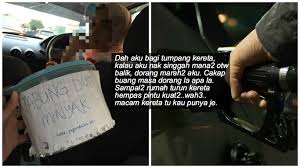 TABUNG DUIT
MINYAK
Dah aku bagi tumpang kereta,
kalau aku nak singgah mana2 otw
balik, dorang marah2 aku. Cakap
buang masa dorang la apa la.
Sampai2 rumah turun kereta
hempas pintu kuat2..wah3..
macam kereta tu kau punya je.